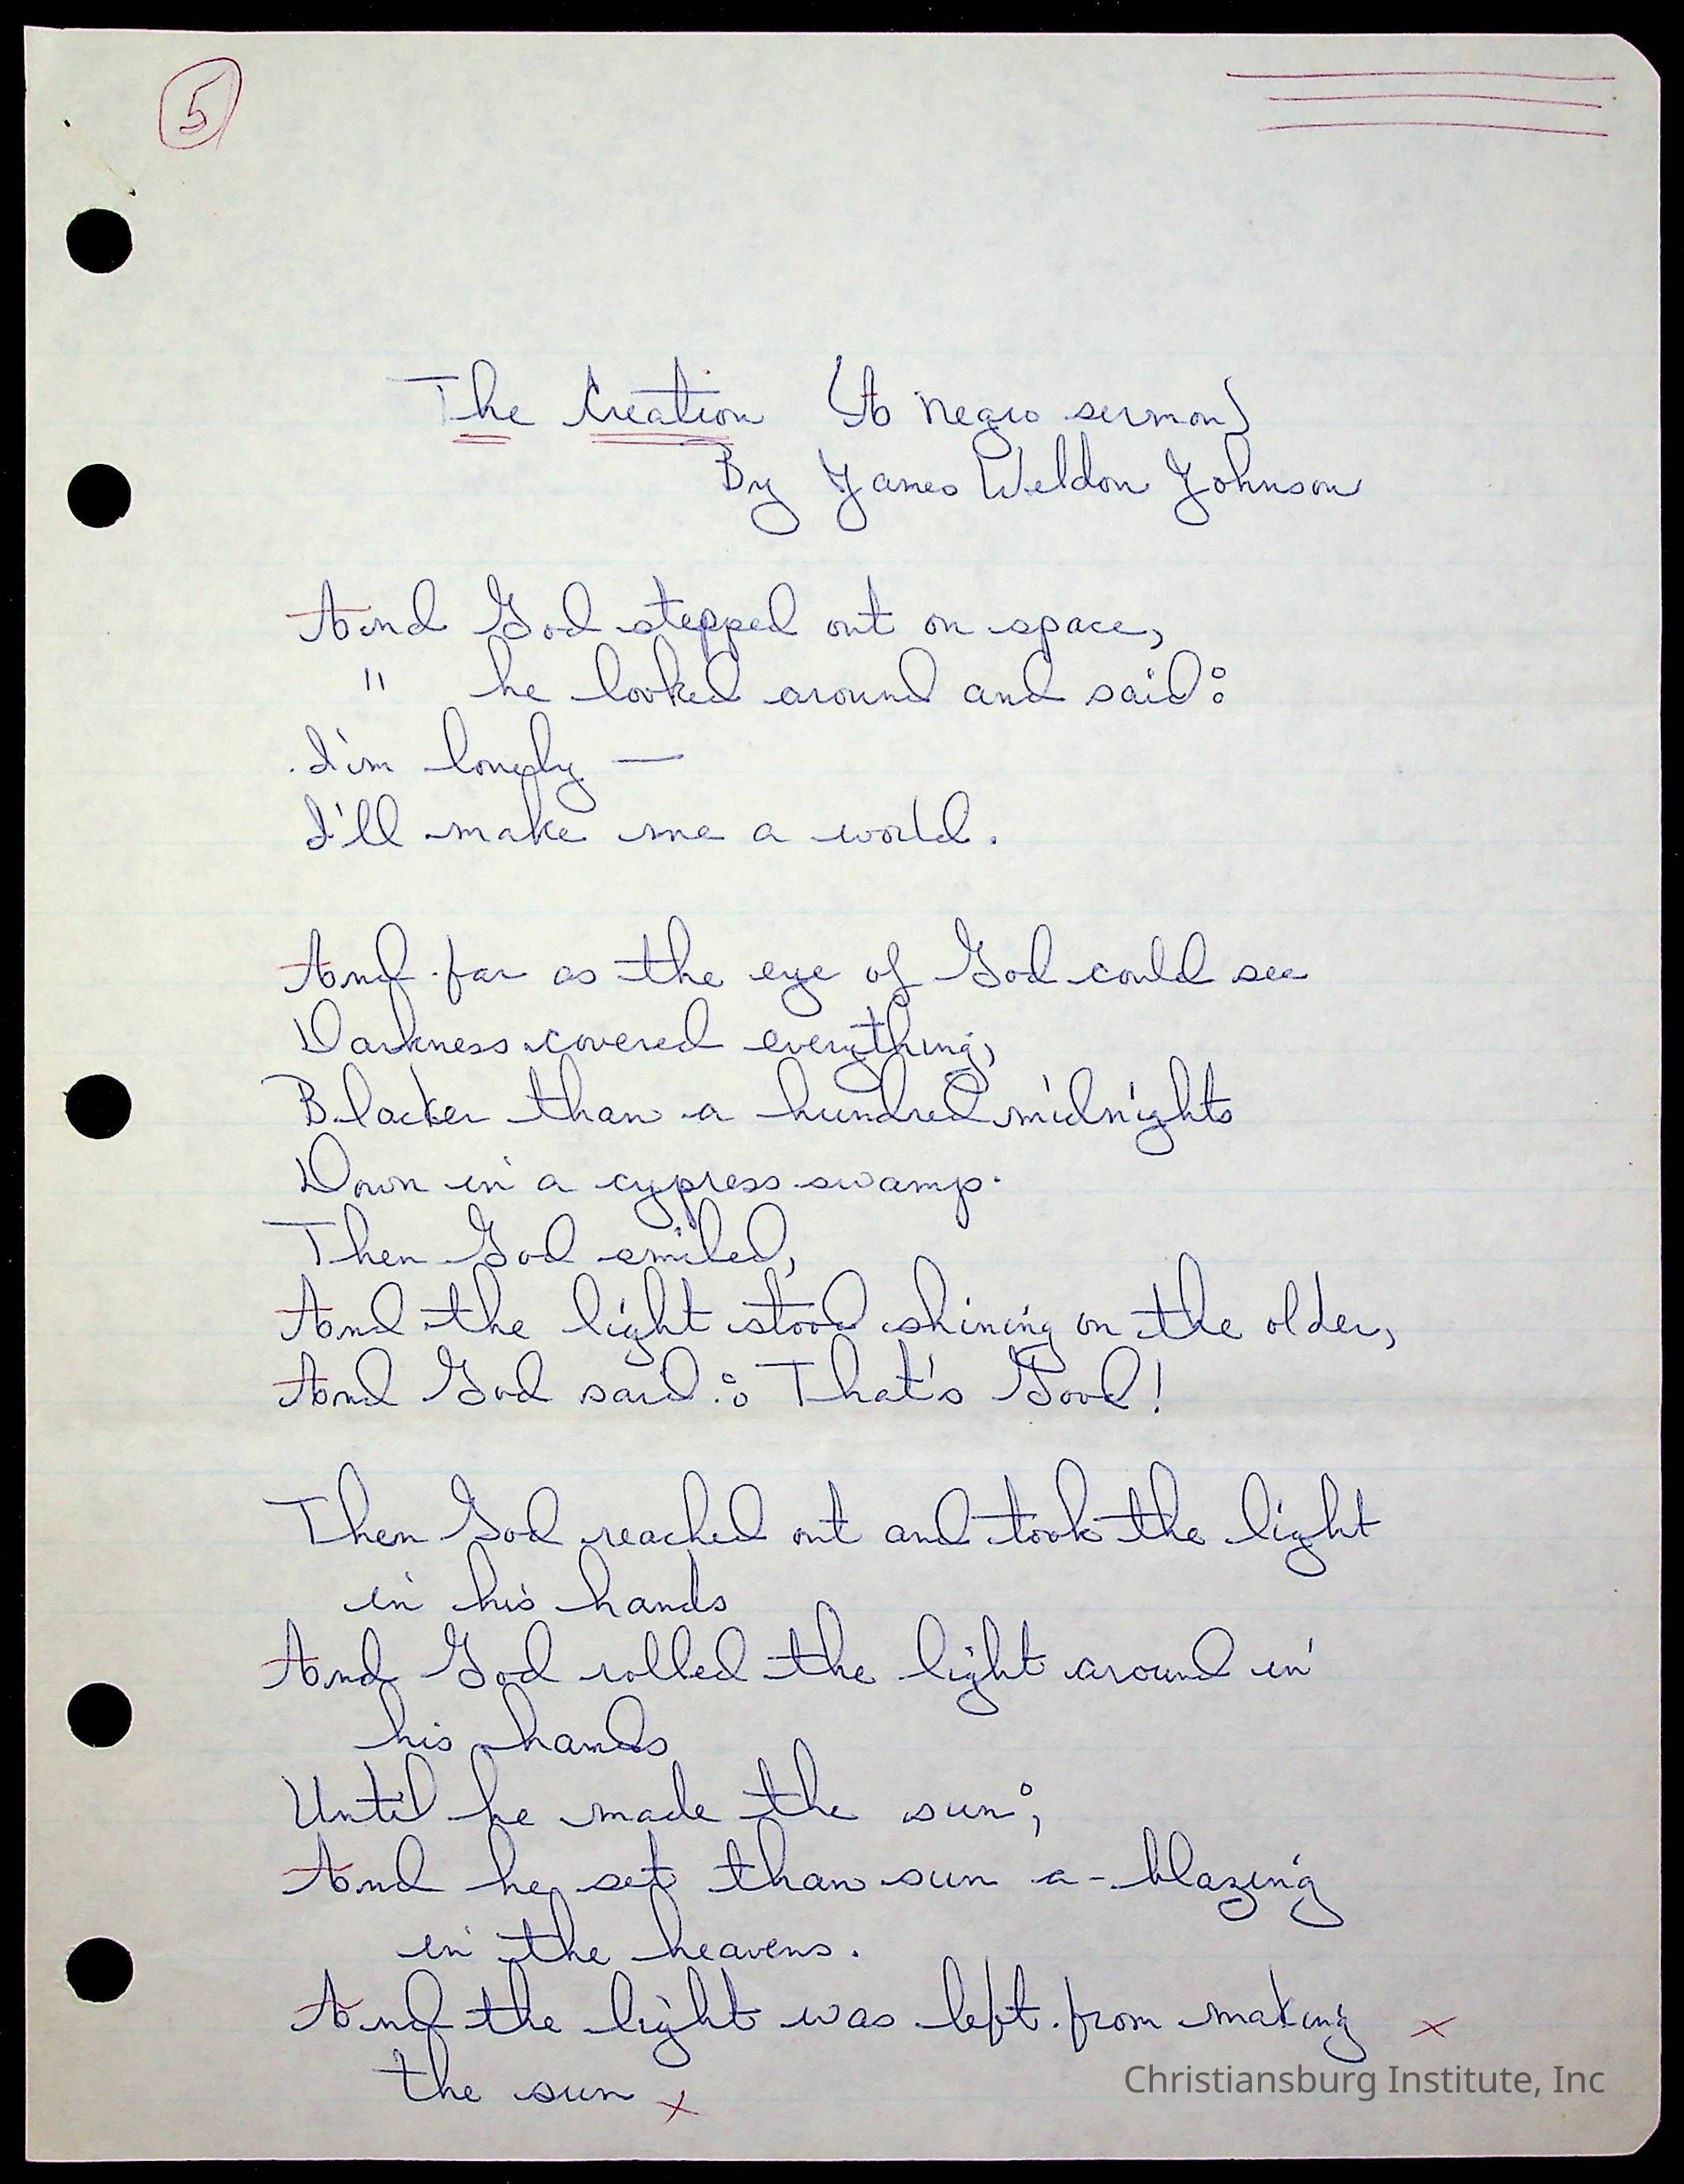 5
The Creation (A Negro sermon)
By James Weldon Johnson
And God stepped out on space,
" he looked around and said:
I'm lonely —
I'll make me a world.
And far as the eye of God could see
Darkness covered everything,
Blacker than a hundred midnights
Down in a cypress swamp.
Then God smiled,
And the light stood shining on the older,
And God said: That's Good!
Then God reached out and took the light
in his hands
And God rolled the light around in
his hands
Until he made the sun;
And he set than sun a-blazing
in the heavens.
And the light was left from making x
the sun x
Christiansburg Institute, Inc